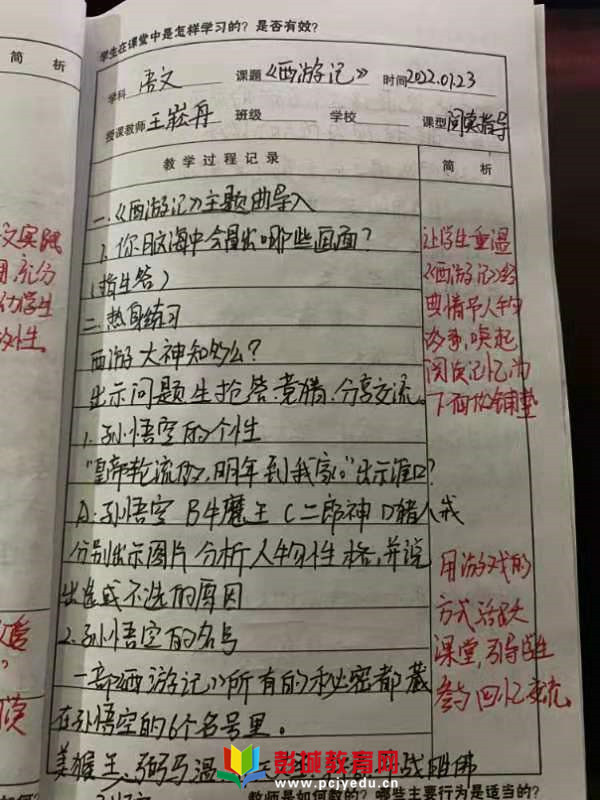 学生在课堂中是怎样学习的？是否有效？
简 析
学科 语文 课题《西游记》 时间2022.01.23
授课教师 王崧丹 班级 学校 课型 阅读指导
教学过程记录 简 析
一.《西游记》主题曲导入
1. 你脑海中会冒出哪些画面？
(指生答)
二.热身练习
西游大神知多么？
出示问题生抢答.竞猜.分享交流。
1. 孙悟空的个性
"皇帝轮流做,明年到我家。"出示谁口？
A:孙悟空 B牛魔王 C二郎神 D猪八戒
分别出示图片分析人物性格,并说
出选或不选的原因
2.孙悟空的名号
一部《西游记》所有的秘密都藏
在孙悟空的6个名号里。
美猴王、弼马温 战胜佛
让学生重温
《西游记》经
典情节人物
故事,唤起
阅读记忆为
下面做铺垫
用游戏的
方式活跃
课堂,引导学生
参与回忆交流
彭城教育网
www.pcjyedu.cn
教师是如何教的？哪些主要行为是适当的？